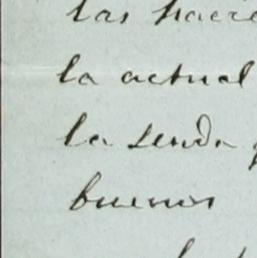 las
la actual
la senda
buenos